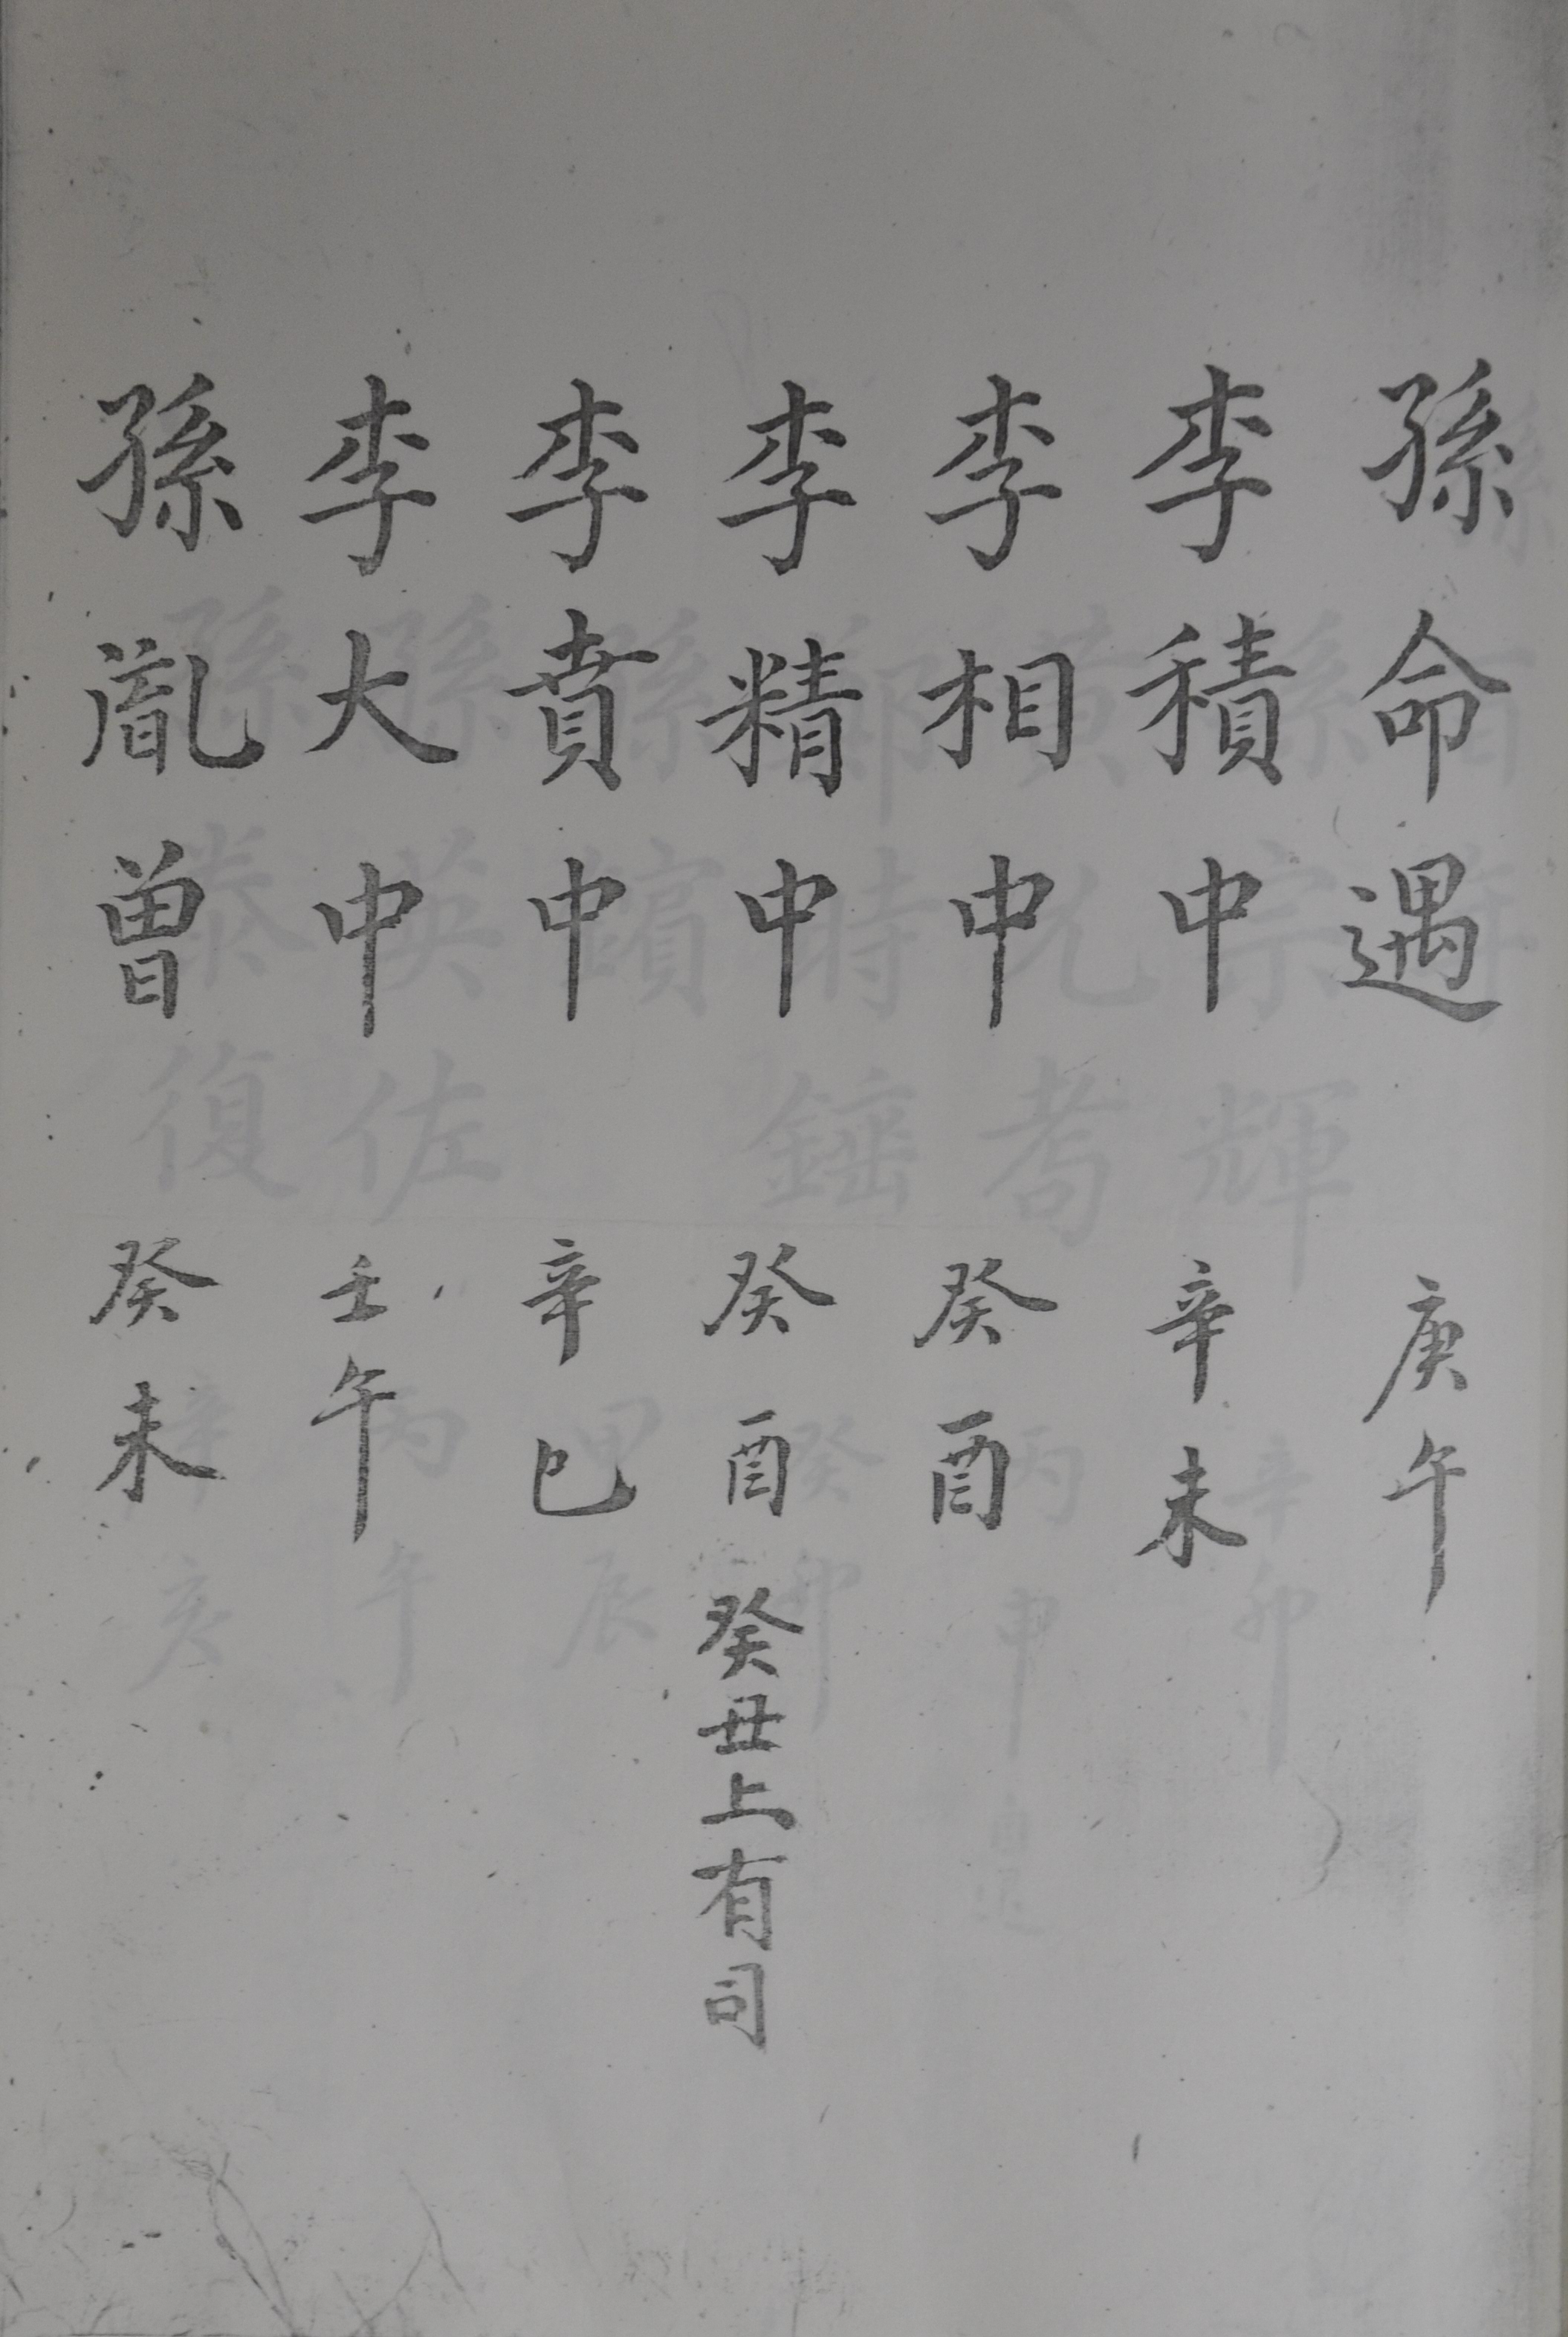 孫命遇 庚午
李積中 辛未
李相中 癸酉
李精中 癸酉 癸丑上有司
李賁中 辛巳
李大中 壬午
孫胤曾 癸未